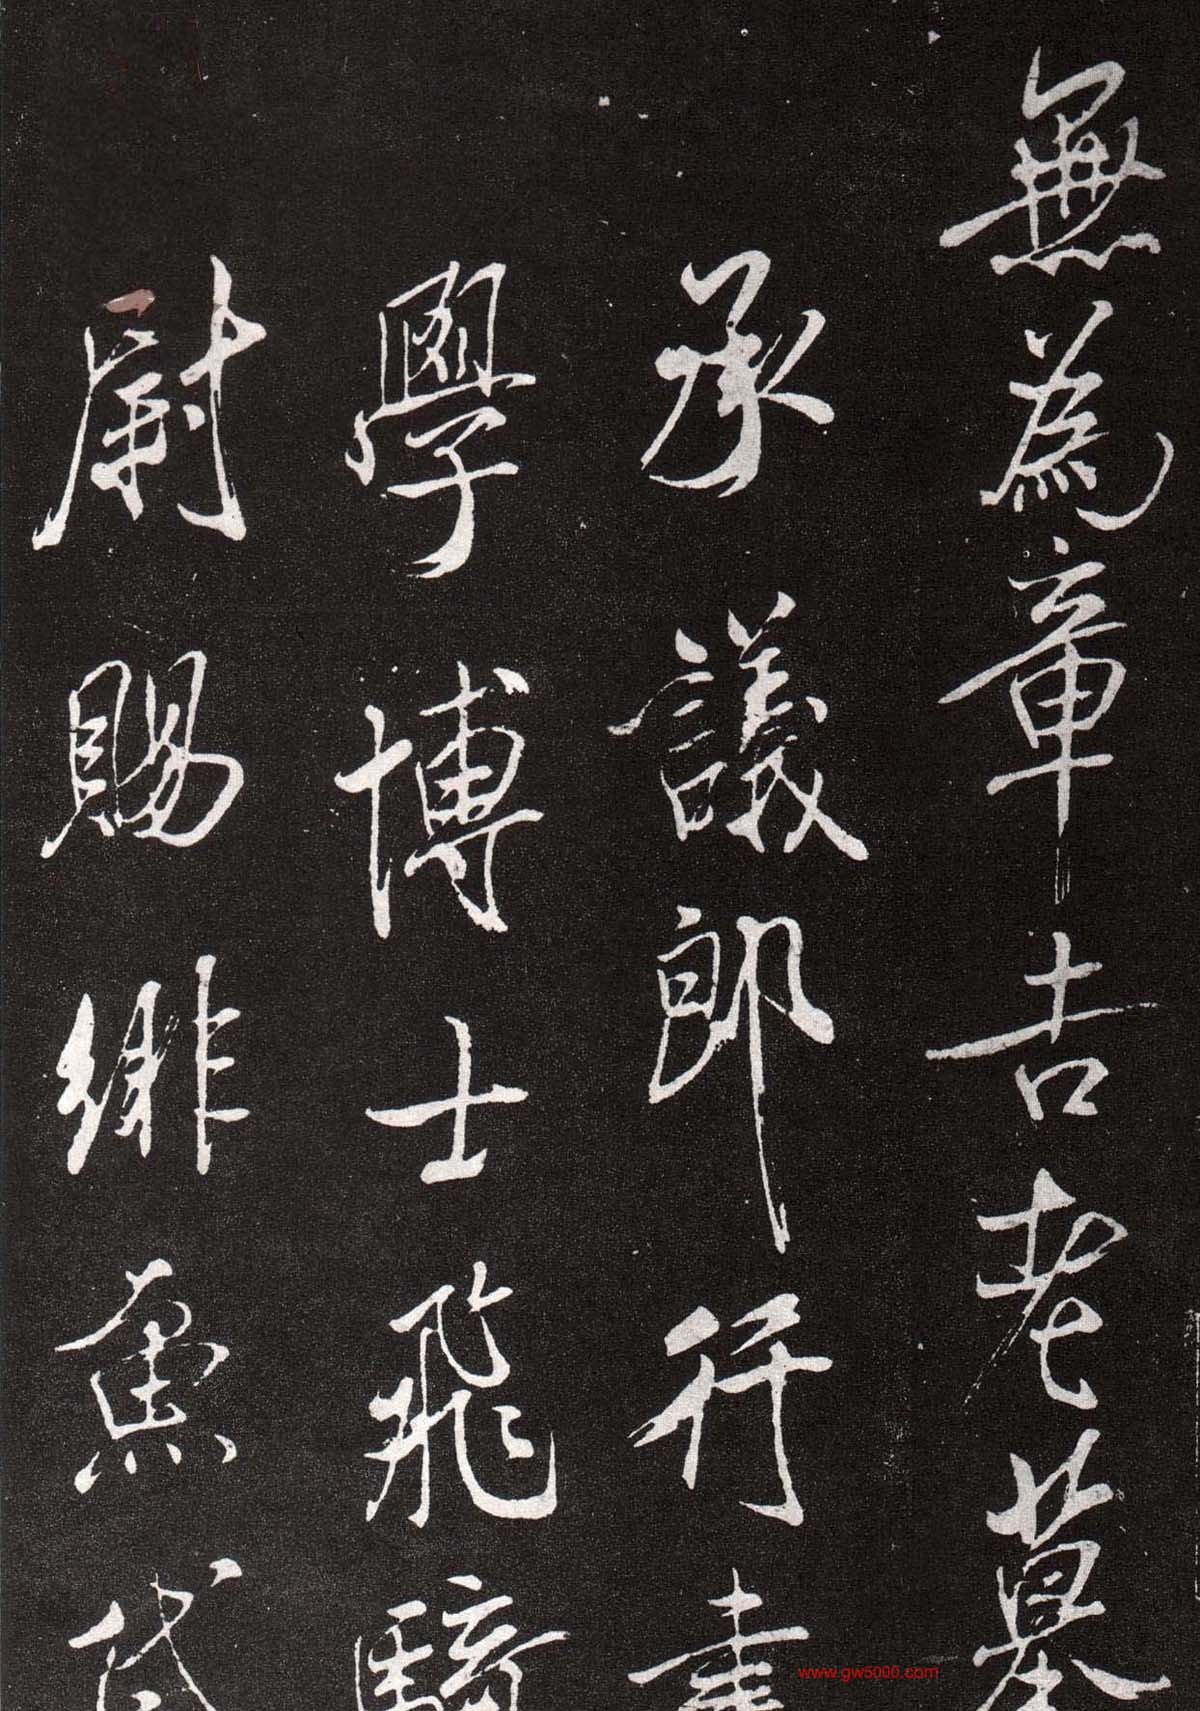 無為章吉老墓
承議郎行書
學博士飛騎
尉賜緋魚袋
www.gw5000.com